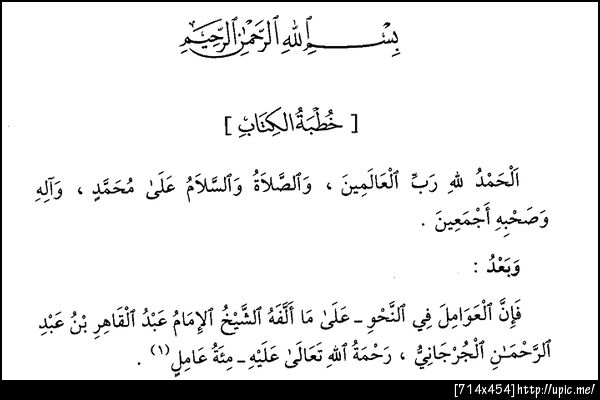 بِسْمِ ٱللهِ ٱلرَّحْمٰنِ ٱلرَّحِيْمِ
[ خُطْبَةُ ٱلكِتَابِ ]
اَلْحَمْدُ للهِ رَبِّ ٱلْعَالَمِينَ ، وَٱلصَّلاَةُ وَٱلسَّلاَمُ عَلَىٰ مُحَمَّدٍ ، وَآلِهِ
وَصَحْبِهِ أَجْمَعِينَ .
وَبَعْدُ :
فَإِنَّ ٱلْعَوَامِلَ فِي ٱلنَّحْوِ ـ عَلَىٰ مَا أَلَّفَهُ ٱلشَّيْخُ ٱلإِمَامُ عَبْدُ ٱلْقَاهِرِ بْنُ عَبْدِ
ٱلرَّحْمَـٰنِ ٱلْجُرْجَانِيُّ ، رَحْمَةُ ٱللهِ تَعَالَىٰ عَلَيْهِ ـ مِئَةُ عَامِلٍ (١) .
[714x454] http://upic.me/